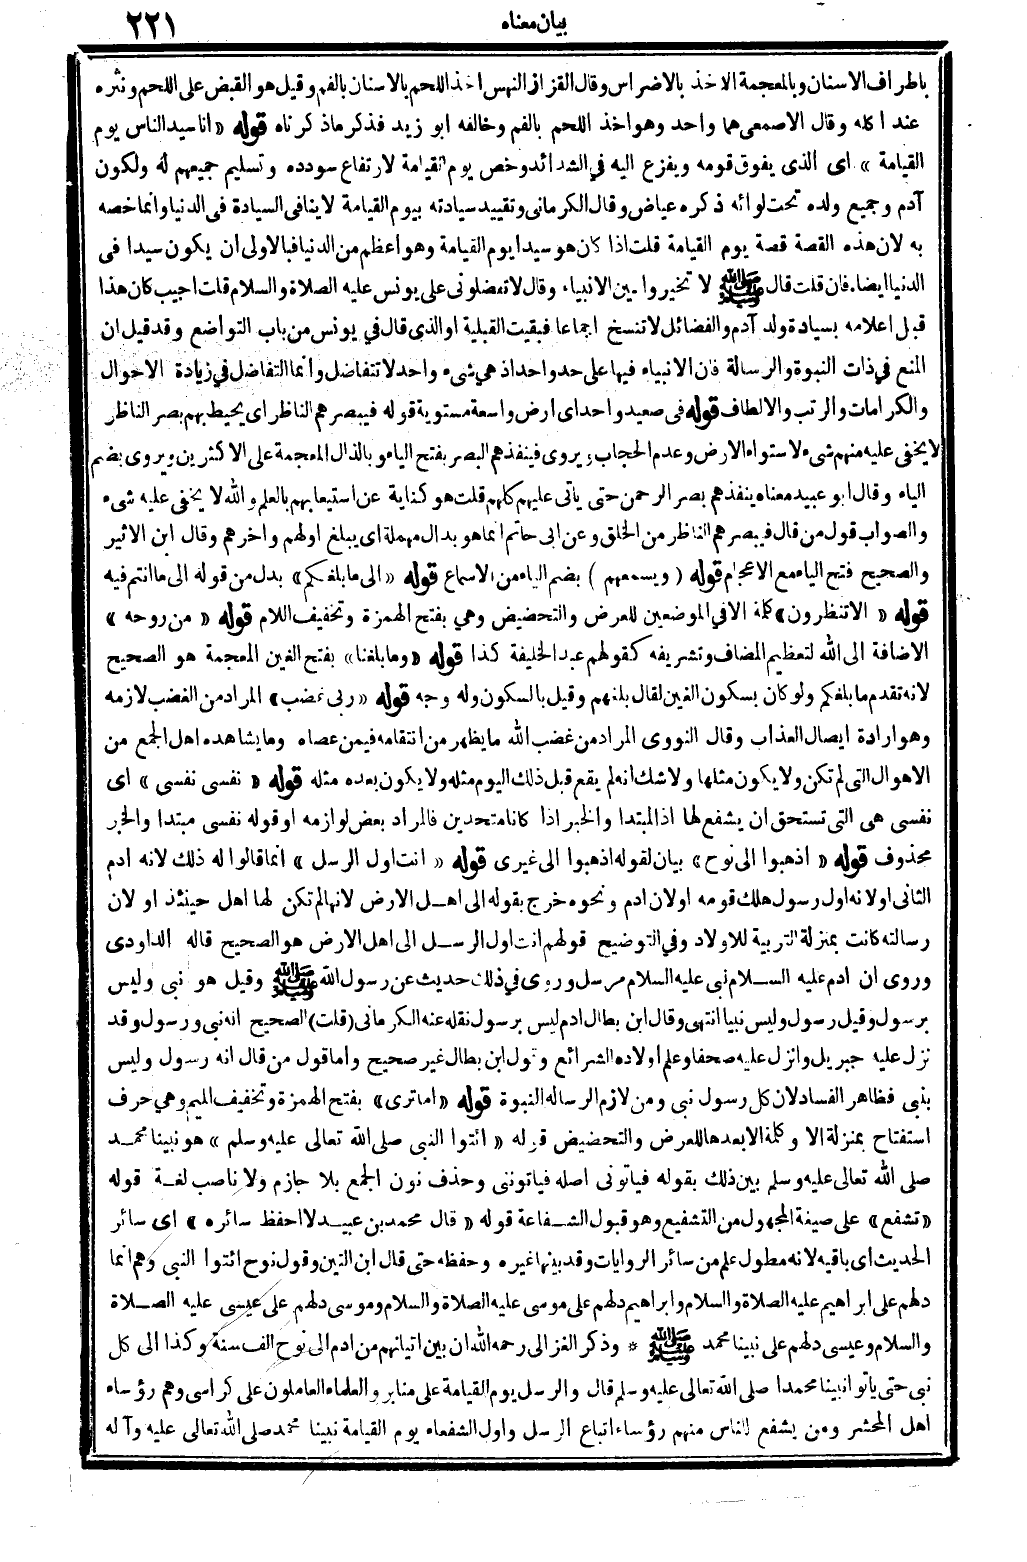 بيان معناه ٢٢١
باطراف الاسنان وبالمعجمة الاخذ بالاضراس وقال القزاز النهس اخذ اللحم بالاسنان بالفم وقيل هو القبض على اللحم ونثره
عند اكله وقال الاصمعى هما واحد وهو اخذ اللحم بالفم وخالفه ابو زيد فذكر ماذكرناه قوله « انا سيد الناس يوم
القيامة » اى الذى يفوق قومه ويفزع اليه في الشدائد وخص يوم القيامة لارتفاع سودده وتسليم جميعهم له ولكون
آدم وجميع ولده تحت لوائه ذكره عياض وقال الكرمانى وتقييد سيادته بيوم القيامة لاينافى السيادة فى الدنيا وانما خصه
به لان هذه القصة قصة يوم القيامة قلت اذا كان هو سيدا يوم القيامة وهو اعظم من الدنيا فبالاولى ان يكون سيدا فى
الدنيا ايضا ء فان قلت قال ﷺ لا تخيروا بين الانبياء وقال لا تفضلونى على يونس عليه الصلاة والسلام قلت اجيب كان هذا
قبل اعلامه بسيادة ولد آدم والفضائل لا تنسخ اجماعا فبقيت القبلية او الذى قال في يونس من باب التواضع وقد قيل ان
المنع في ذات النبوة والرسالة فان الانبياء فيها على حد واحد اذ هي شىء واحد لا تتفاضل وانما التفاضل في زيادة الاحوال
والكرامات والرتب والالطاف قوله فى صعيد واحد اى ارض واسعة مستوية قوله فيبصرهم الناظر اى يحيط بهم بصر الناظر
لا يخفى عليه منهم شىء لاستواء الارض وعدم الحجاب ويروى فينفذهم البصر بفتح الياء وبالذال المعجمة على الاكثرين ويروى بضم
الياء وقال ابو عبيد معناه ينفذهم بصر الرحمن حتى ياتى عليهم كلهم قلت هو كناية عن استيعابهم بالعلم والله لا يخفى عليه شىء
والصواب قول من قال فيبصرهم الناظر من الخلق وعن ابى حاتم انما هو بدال مهملة اى يبلغ اولهم واخرهم وقال ابن الاثير
والصحيح فتح الياء مع الاعجام قوله ( ويسمعهم ) بضم الياء من الاسماع قوله « الى ما بلغكم » بدل من قوله الى ما انتم فيه
قوله « الا تنظرون » كلمة الا في الموضعين للعرض والتحضيض وهي بفتح الهمزة وتخفيف اللام قوله « من روحه »
الاضافة الى الله لتعظيم المضاف وتشريفه كقولهم عبد الخليفة كذا قوله « وما بلغنا » بفتح الغين المعجمة هو الصحيح
لانه تقدم ما بلغكم ولو كان بسكون الغين لقال بلغهم وقيل بالسكون وله وجه قوله « ربى غضب » المراد من الغضب لازمه
وهو ارادة ايصال العذاب وقال النووى المراد من غضب الله ما يظهر من انتقامه فيمن عصاه وما يشاهده اهل الجمع من
الاهوال التى لم تكن ولا يكون مثلها ولا شك انه لم يقع قبل ذلك اليوم مثله ولا يكون بعده مثله قوله « نفسى نفسى » اى
نفسى هى التى تستحق ان يشفع لها اذ المبتدا والخبر اذا كانا متحدين فالمراد بعض لوازمه او قوله نفسى مبتدا والخبر
محذوف قوله « اذهبوا الى نوح » بيان لقوله اذهبوا الى غيرى قوله « انت اول الرسل » انما قالوا له ذلك لانه ادم
الثانى او لانه اول رسول هلك قومه او لان ادم ونحوه خرج بقوله الى اهل الارض لانها لم تكن لها اهل حينئذ او لان
رسالته كانت بمنزلة التربية للاولاد وفي التوضيح قولهم انت اول الرسل الى اهل الارض هو الصحيح قاله الداودى
وروى ان ادم عليه السلام نبى عليه السلام مرسل وروى في ذلك حديث عن رسول الله ﷺ وقيل هو نبى وليس
برسول وقيل رسول وليس نبيا انتهى وقال ابن بطال ادم ليس برسول نقله عنه الكرمانى (قلت) الصحيح انه نبى ورسول وقد
نزل عليه جبريل وانزل عليه صحفا وعلم اولاده الشرائع وقول ابن بطال غير صحيح واما قول من قال انه رسول وليس
بنبى فظاهر الفساد لان كل رسول نبى ومن لازم الرساله النبوة قوله « اما ترى » بفتح الهمزة وتخفيف الميم وهي حرف
استفتاح بمنزلة الا وكلمة الا بعدها للعرض والتحضيض قوله « ائتوا النبي صلى الله تعالى عليه وسلم » هو نبينا محمد
صلى الله تعالى عليه وسلم بين ذلك بقوله فياتونى اصله فياتوننى وحذف نون الجمع بلا جازم ولا ناصب لغة قوله
« تشفع » على صيغة المجهول من التشفيع وهو قبول الشفاعة قوله « قال محمد بن عبيد لا احفظ سائره » اى سائر
الحديث اى باقيه لانه مطول علم من سائر الروايات وقد بينها غيره وحفظه حتى قال ابن التين وقول نوح ائتوا النبى وهم انما
دلهم على ابراهيم عليه الصلاة والسلام وابراهيم دلهم على موسى عليه الصلاة والسلام وموسى دلهم على عيسى عليه الصلاة
والسلام وعيسى دلهم على نبينا محمد ﷺ * وذكر الغزالى رحمه الله ان بين اتيانهم من ادم الى نوح الف سنة وكذا الى كل
نبى حتى ياتوا نبينا محمدا صلى الله تعالى عليه وسلم قال والرسل يوم القيامة على منابر والعلماء العاملون على كراسى وهم رؤساء
اهل المحشر ومن يشفع للناس منهم رؤساء اتباع الرسل واول الشفعاء يوم القيامة نبينا محمد صلى الله تعالى عليه وآله